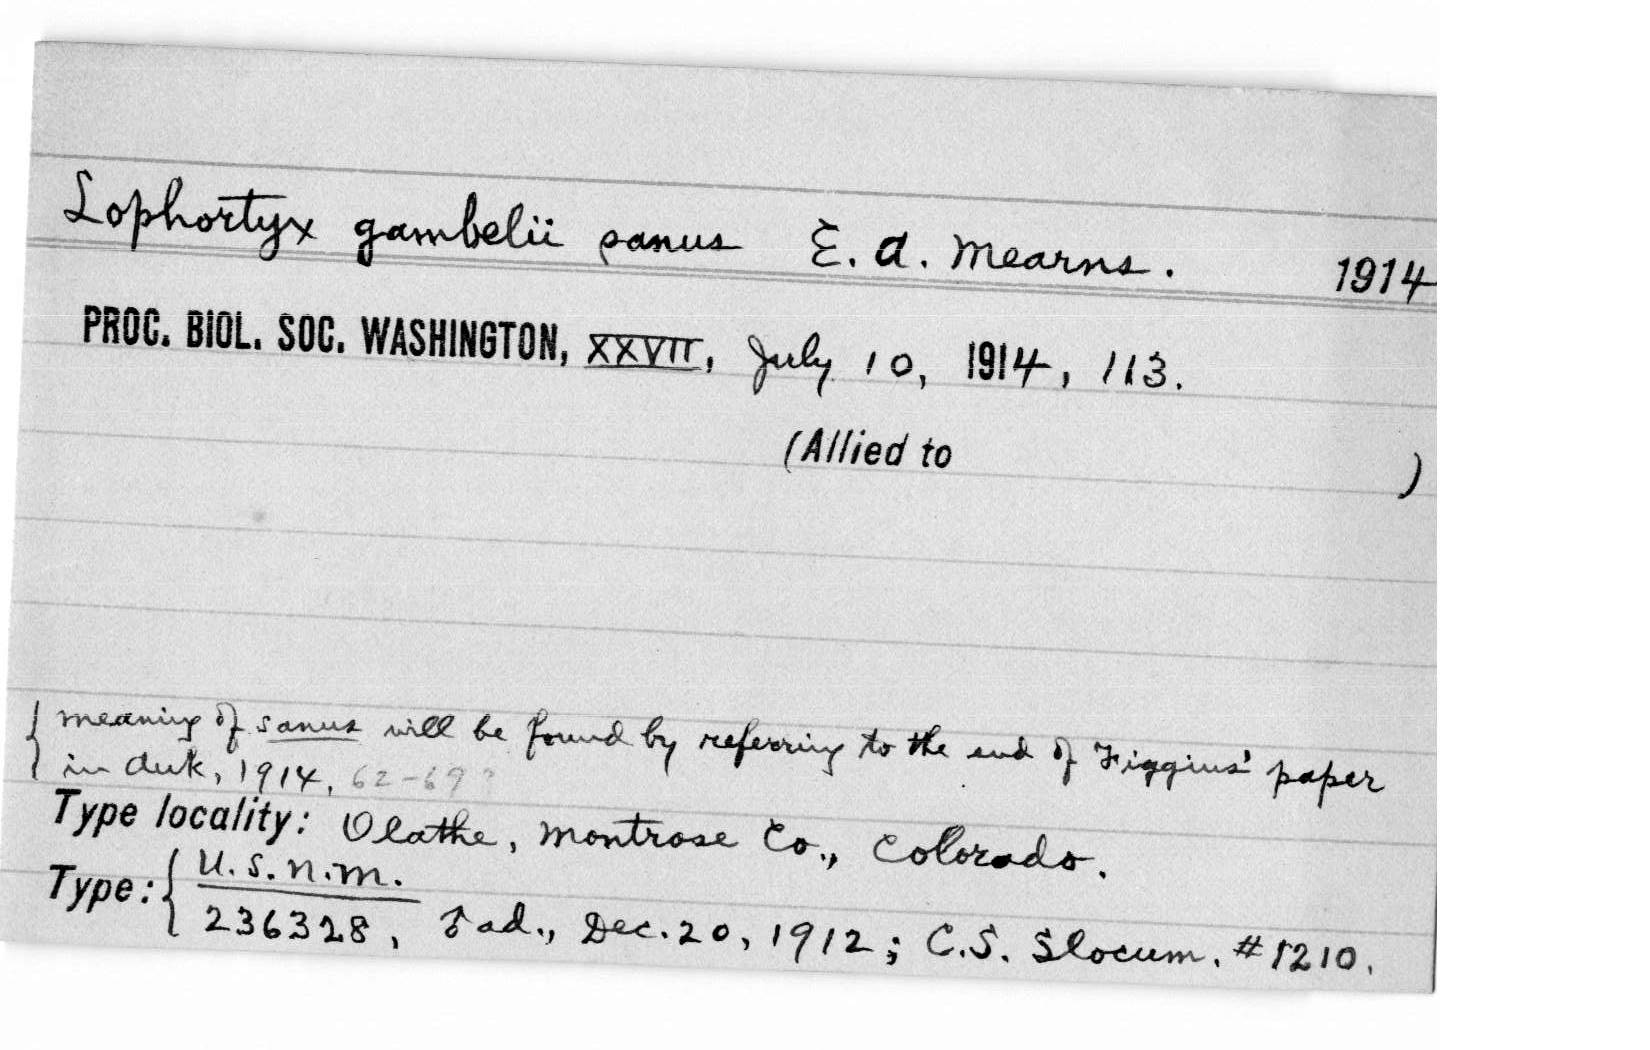 Lophortyx gambelii sanus E. A. Mearns. 1914
PROC. BIOL. SOC. WASHINGTON, XXVII, July 10, 1914, 113.
(Allied to )
{ meaning of sanus will be found by referring to the end of Figgins' paper
in Auk, 1914, 62-69?
Type locality: Olathe, Montrose Co., Colorado.
Type: { U.S.N.M.
236328, ♂ ad., Dec. 20, 1912; C.S. Slocum. #1210.